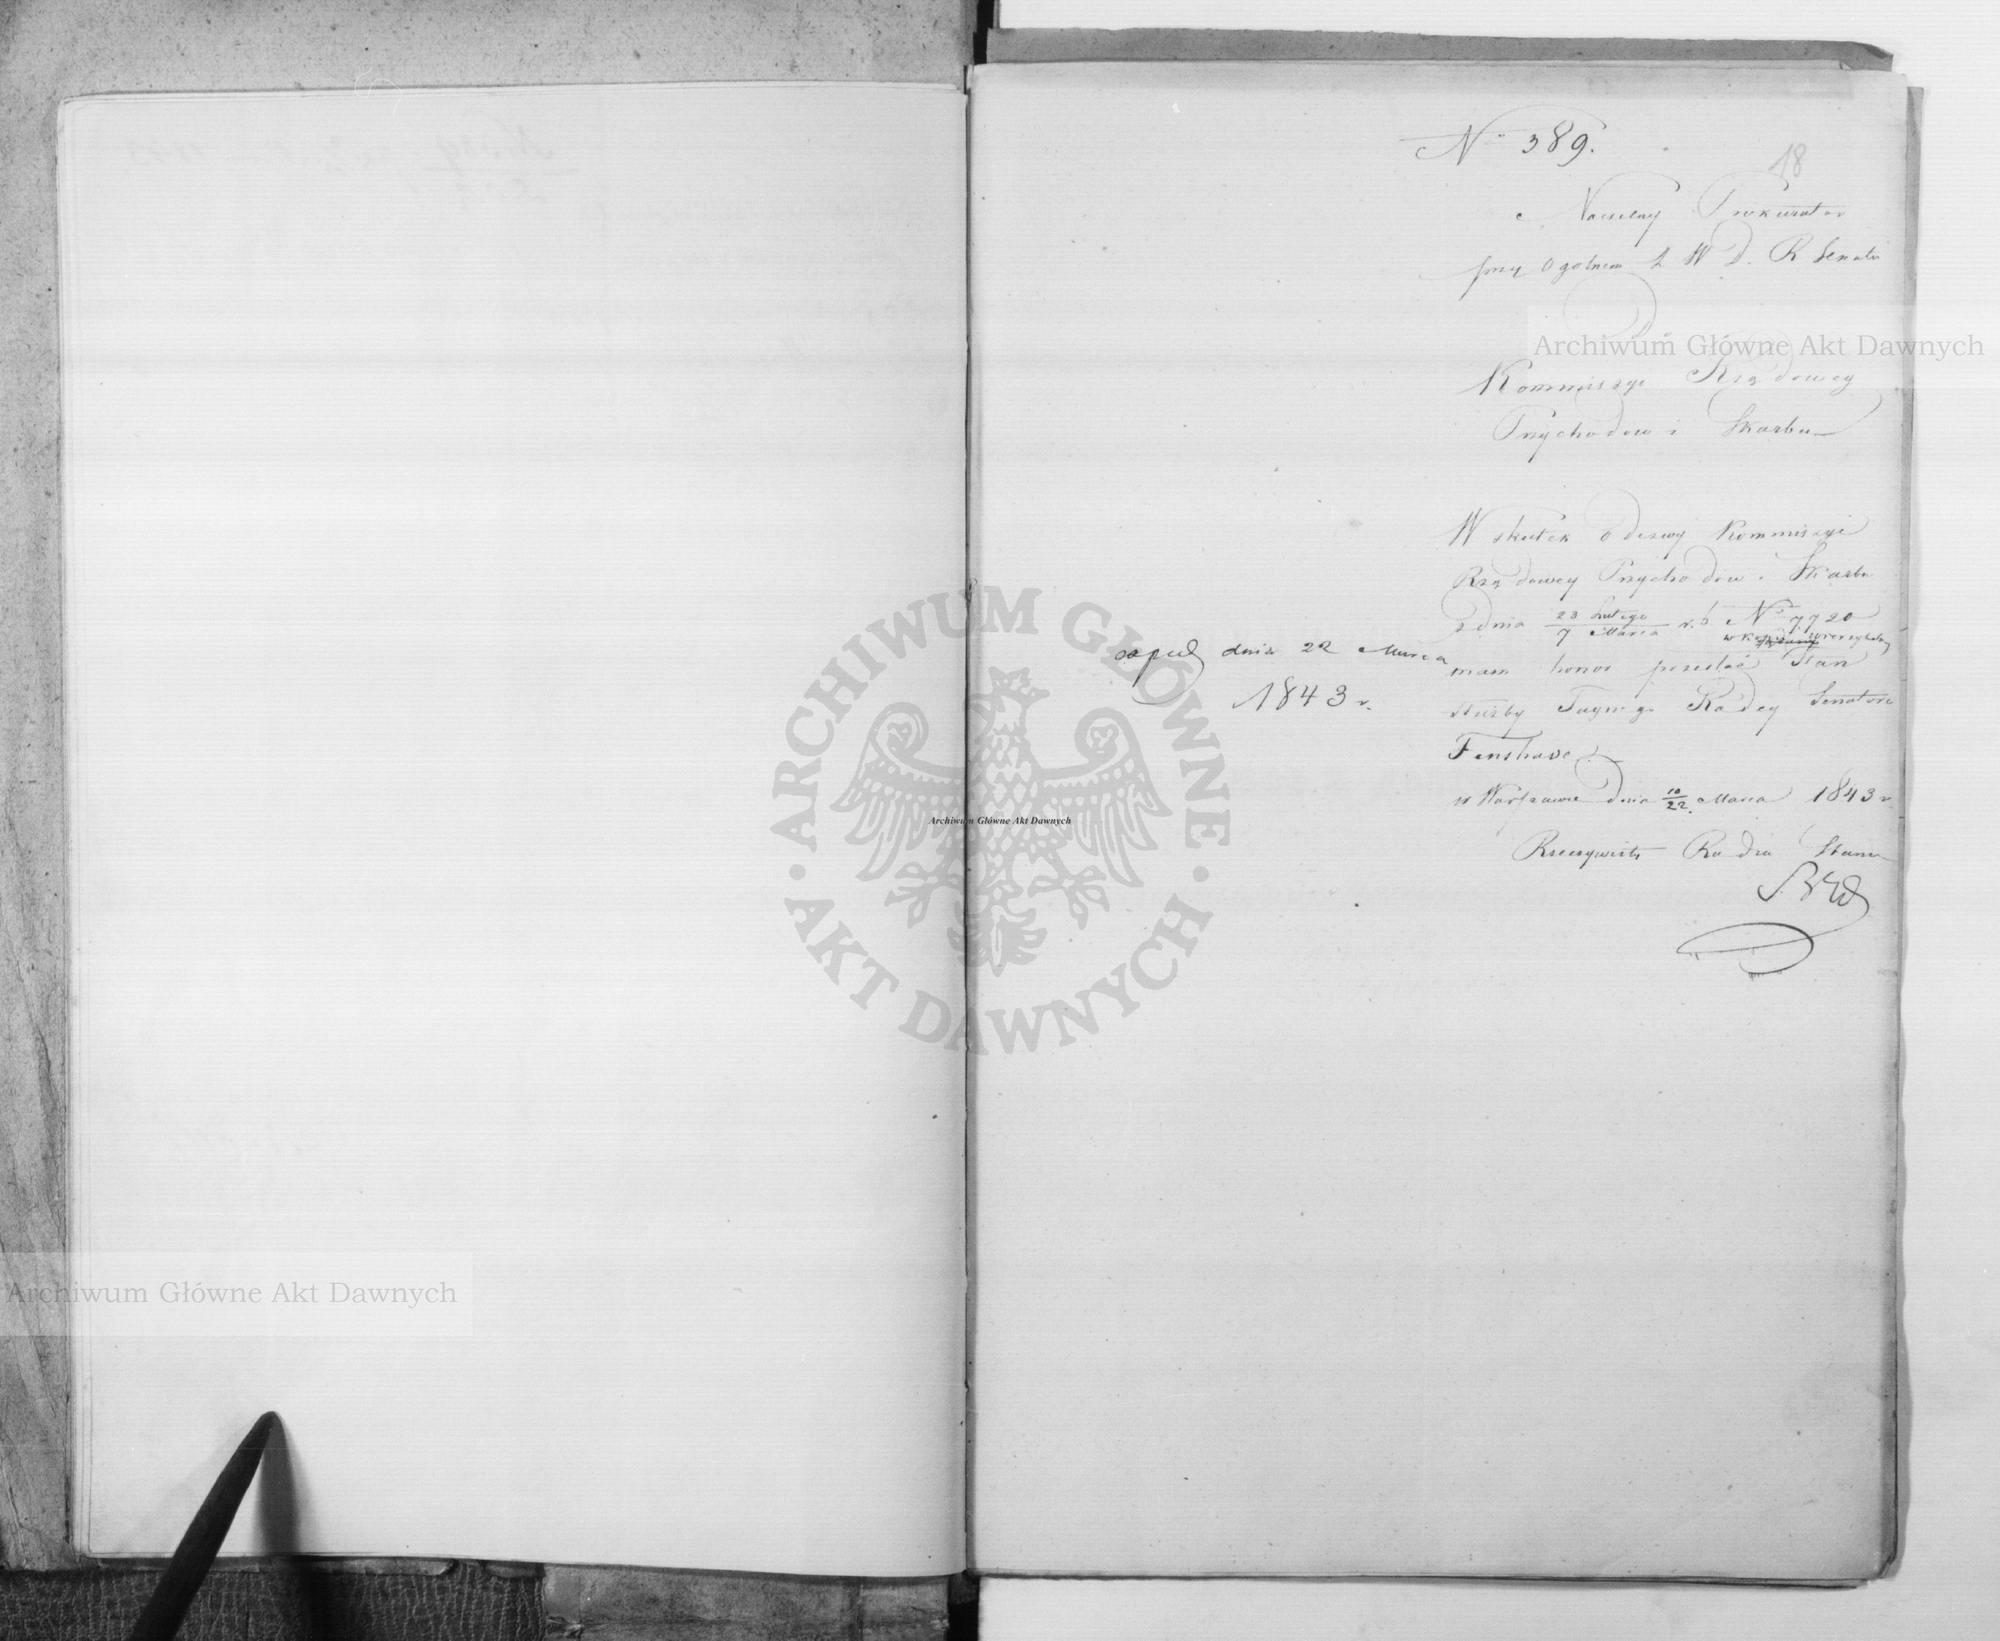 N° 389.
18
Naczelny Prokurator
przy Ogolnem Z W D. R Senatu
Do
Kommissyi Rządowey
Przychodow i Skarbu
W skutek Odezwy Kommissyi
Rządowey Przychodow i Skarbu
z dnia 23 Lutego / 7 Marca r. b N° 7720
w kopii wierzytelney
mam honor przesłać Stan
służby Taynego Radcy Senatora
Fenshave.
w Warszawie dnia 10/22 Marca 1843 r.
Rzeczywisty Radca Stanu
exped dnia 22 Marca
1843 r.
Archiwum Główne Akt Dawnych
ARCHIWUM GŁÓWNE
· AKT DAWNYCH ·
Archiwum Główne Akt Dawnych
Archiwum Główne Akt Dawnych